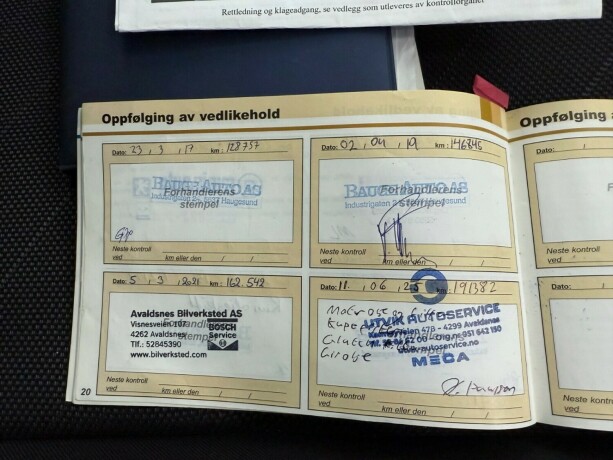 Rettledning og klageadgang, se vedlegg som utleveres av kontrollorganet
Oppfølging av vedlikehold
Dato: 23 , 3 , 17 km : 128757
BAUGE AUTO AS
Forhandlerens
stempel
Industrigaten 24, 5537 Haugesund
Neste kontroll
ved km eller den / /
Dato: 02 , 04 , 19 km : 146845
BAUGE AUTO AS
Forhandlerens
stempel
Industrigaten Haugesund
Neste kontroll
ved km eller den / /
Dato: 5 , 3 , 2021 km : 162.542
Avaldsnes Bilverksted AS
Visnesveien 107
4262 Avaldsnes
Tlf.: 52845390
www.bilverksted.com
BOSCH
Service
Neste kontroll
ved km eller den / /
Dato: 11. , 06 , 25 km : 191382
UTVIK AUTOSERVICE
47B - 4299 Avaldsnes
Org.nr 951 642 150
MECA
Neste kontroll
ved km eller den / /
20
Oppfølging av
Dato: /
Neste kontroll
ved
Dato: /
Neste kontroll
ved